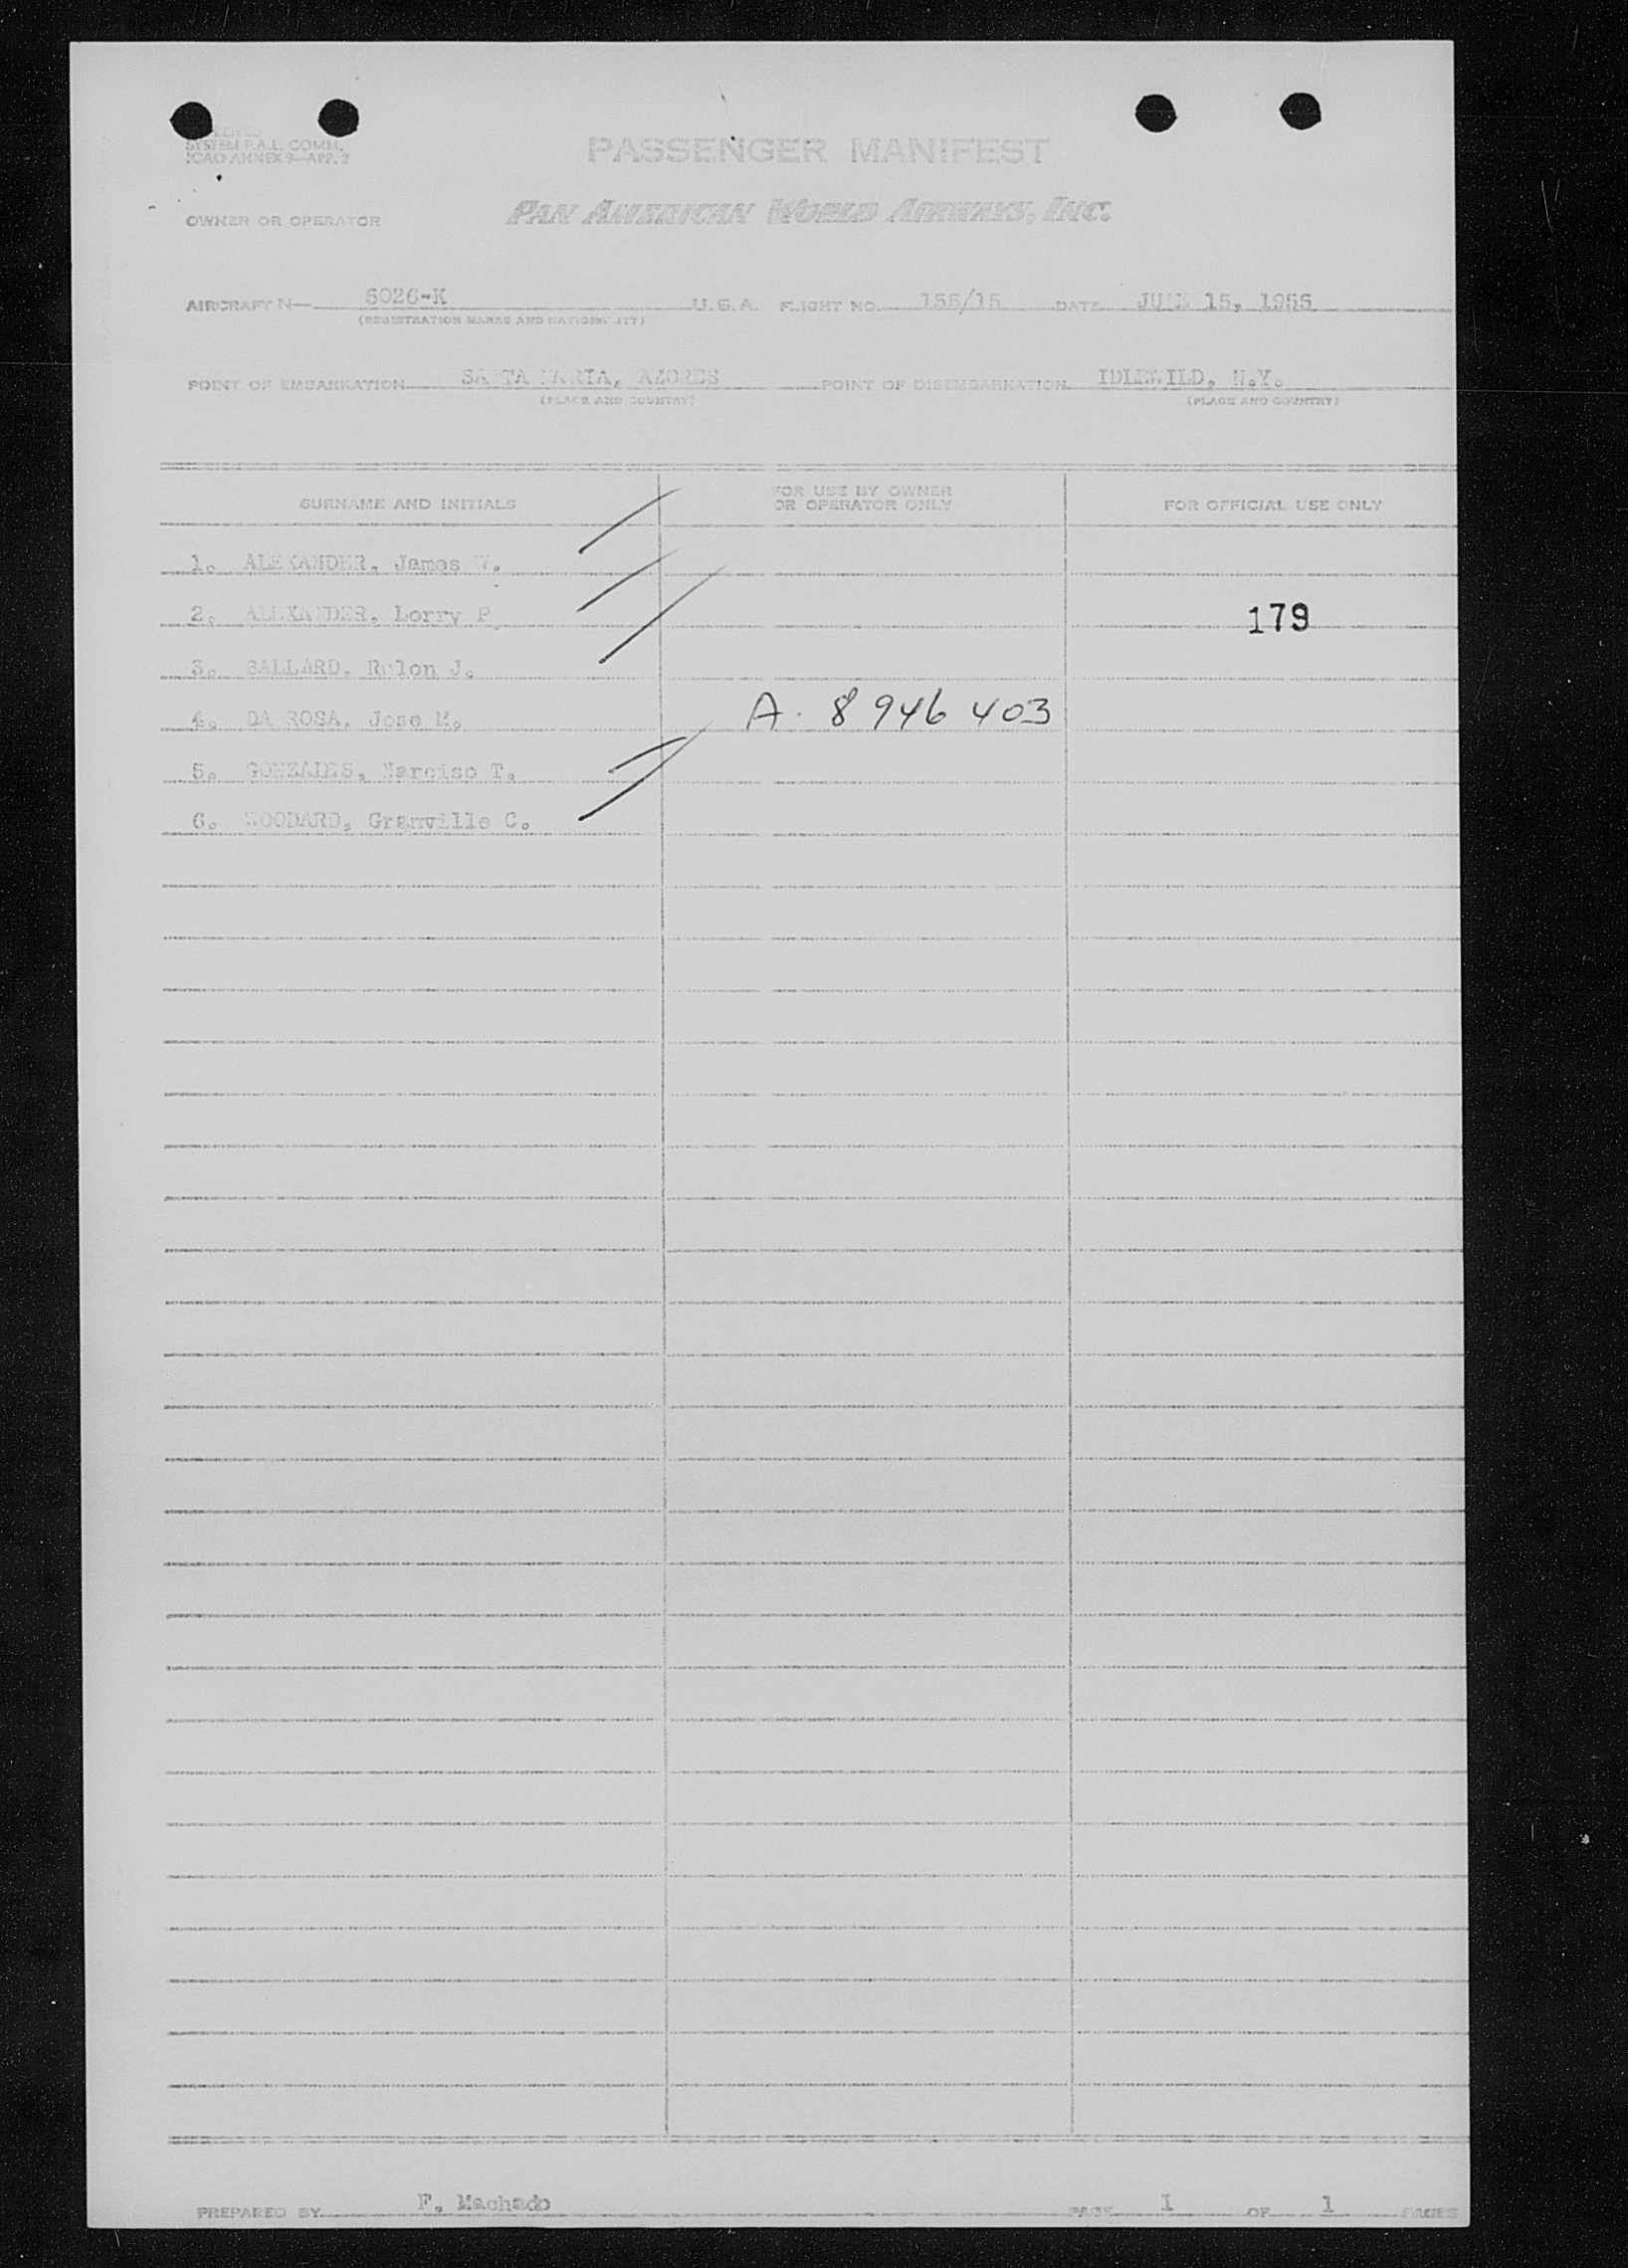 SYSTEM F.A.L. COMM.
ICAO ANNEX 9—APP. 2
PASSENGER MANIFEST
OWNER OR OPERATOR PAN AMERICAN WORLD AIRWAYS, INC.
AIRCRAFT N— 5026-K U.S.A. FLIGHT NO. 155/15 DATE JUNE 15, 1955
(REGISTRATION MARKS AND NATIONALITY)
POINT OF EMBARKATION SANTA MARIA, AZORES POINT OF DISEMBARKATION IDLEWILD, N.Y.
(PLACE AND COUNTRY) (PLACE AND COUNTRY)
SURNAME AND INITIALS FOR USE BY OWNER OR OPERATOR ONLY FOR OFFICIAL USE ONLY
1. ALEXANDER, James W.
2. ALEXANDER, Lorry P 179
3. BALLARD, Rulon J.
4. DA ROSA, Jose M. A. 8 946 403
5. GONZALES, Narciso T.
6. WOODARD, Granville C.
PREPARED BY F. Machado PAGE 1 OF 1 PAGES